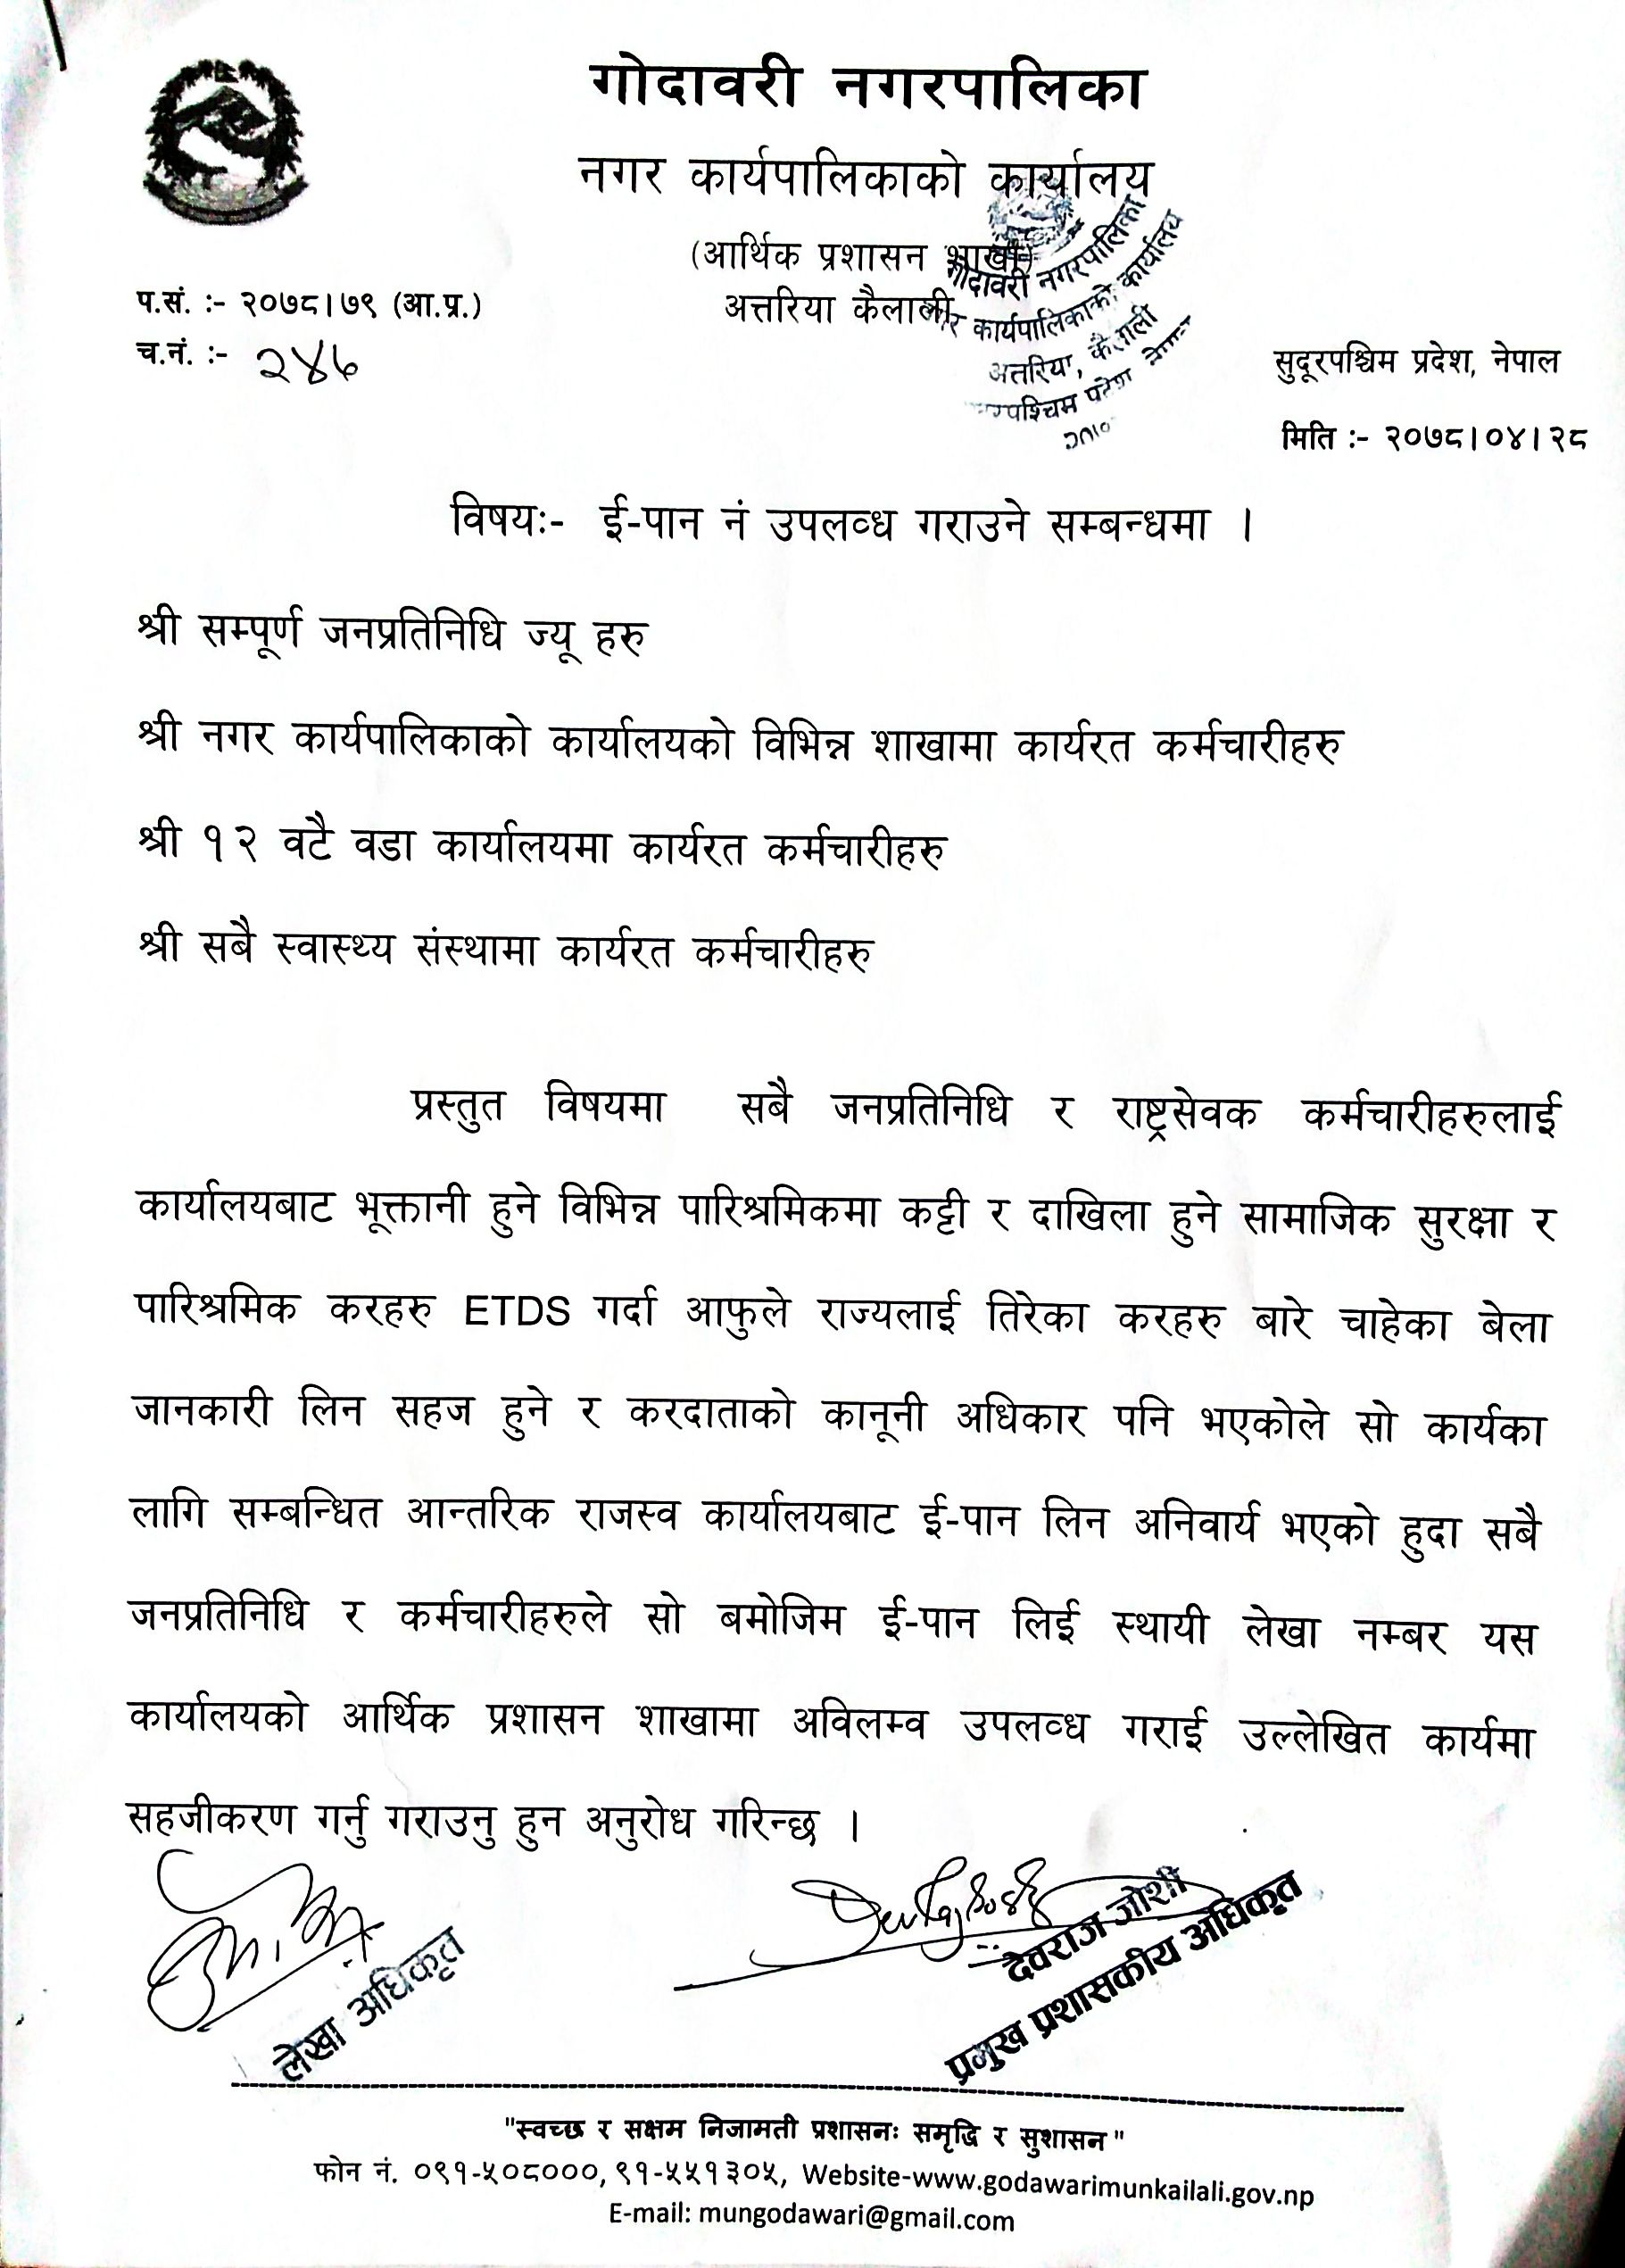 गोदावरी नगरपालिका
नगर कार्यपालिकाको कार्यालय
(आर्थिक प्रशासन शाखा)
अत्तरिया कैलाली
प.सं. :- २०७८।७९ (आ.प्र.)
च.नं. :- २४७
गोदावरी नगरपालिका
कार्यपालिकाको कार्यालय
अत्तरिया, कैलाली
सुदूरपश्चिम प्रदेश, नेपाल
मिति :- २०७८।०४।२८
विषयः- ई-पान नं उपलव्ध गराउने सम्बन्धमा ।
श्री सम्पूर्ण जनप्रतिनिधि ज्यू हरु
श्री नगर कार्यपालिकाको कार्यालयको विभिन्न शाखामा कार्यरत कर्मचारीहरु
श्री १२ वटै वडा कार्यालयमा कार्यरत कर्मचारीहरु
श्री सबै स्वास्थ्य संस्थामा कार्यरत कर्मचारीहरु
प्रस्तुत विषयमा सबै जनप्रतिनिधि र राष्ट्रसेवक कर्मचारीहरुलाई
कार्यालयबाट भूक्तानी हुने विभिन्न पारिश्रमिकमा कट्टी र दाखिला हुने सामाजिक सुरक्षा र
पारिश्रमिक करहरु ETDS गर्दा आफुले राज्यलाई तिरेका करहरु बारे चाहेका बेला
जानकारी लिन सहज हुने र करदाताको कानूनी अधिकार पनि भएकोले सो कार्यका
लागि सम्बन्धित आन्तरिक राजस्व कार्यालयबाट ई-पान लिन अनिवार्य भएको हुदा सबै
जनप्रतिनिधि र कर्मचारीहरुले सो बमोजिम ई-पान लिई स्थायी लेखा नम्बर यस
कार्यालयको आर्थिक प्रशासन शाखामा अविलम्व उपलव्ध गराई उल्लेखित कार्यमा
सहजीकरण गर्नु गराउनु हुन अनुरोध गरिन्छ ।
लेखा अधिकृत
देवराज जोशी
प्रमुख प्रशासकीय अधिकृत
"स्वच्छ र सक्षम निजामती प्रशासनः समृद्धि र सुशासन"
फोन नं. ०९१-५०८०००, ९१-५५१३०५, Website-www.godawarimunkailali.gov.np
E-mail: mungodawari@gmail.com